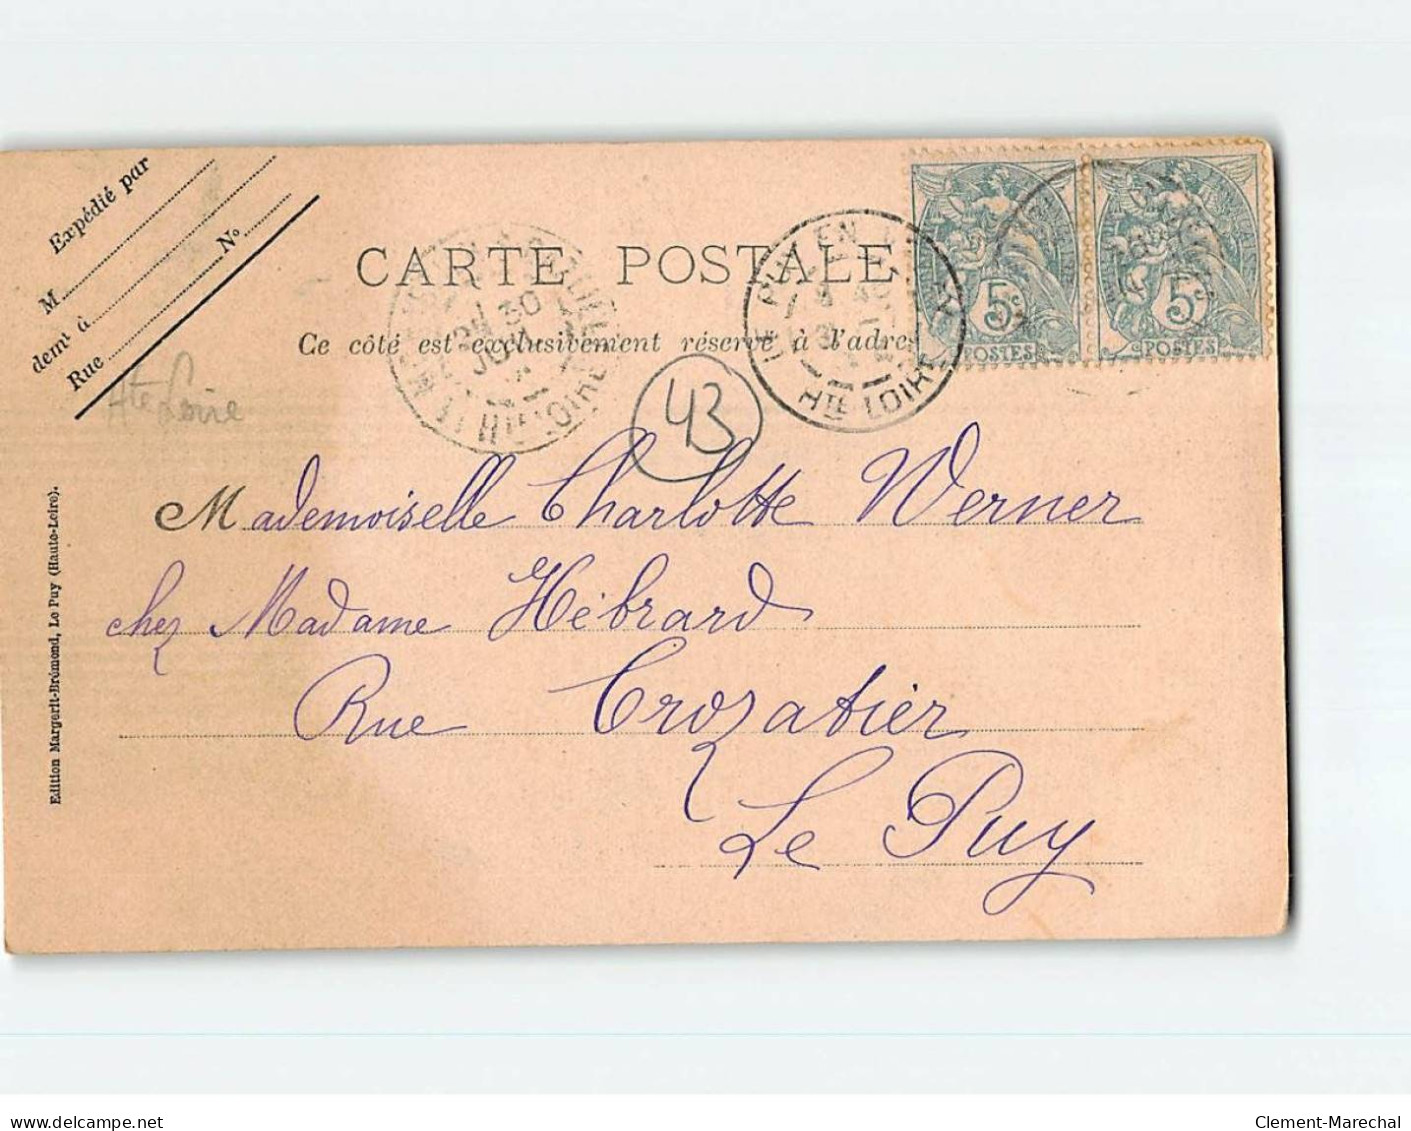 Expédié par
M
demt à
Rue
No
CARTE POSTALE
Ce côté est exclusivement réservé à
30
LE PUY EN
HTE LOIRE
HTE LOIRE
5c
POSTES
5c
POSTES
43
Hte Loire
Mademoiselle Charlotte Werner
chez Madame Hébrard
Rue Crozatier
Le Puy
Edition Margerit-Brémond, Le Puy (Haute-Loire).
www.delcampe.net
Clement-Marechal